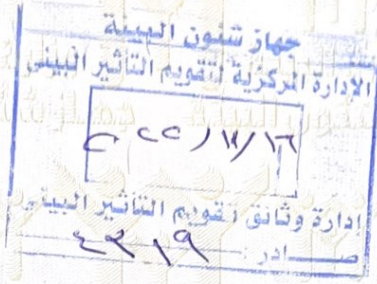 جهاز شئون البيئة
الإدارة المركزية لتقويم التأثير البيئى
إدارة وثائق تقويم التأثير البيئى
صادر : ٤٣١٩